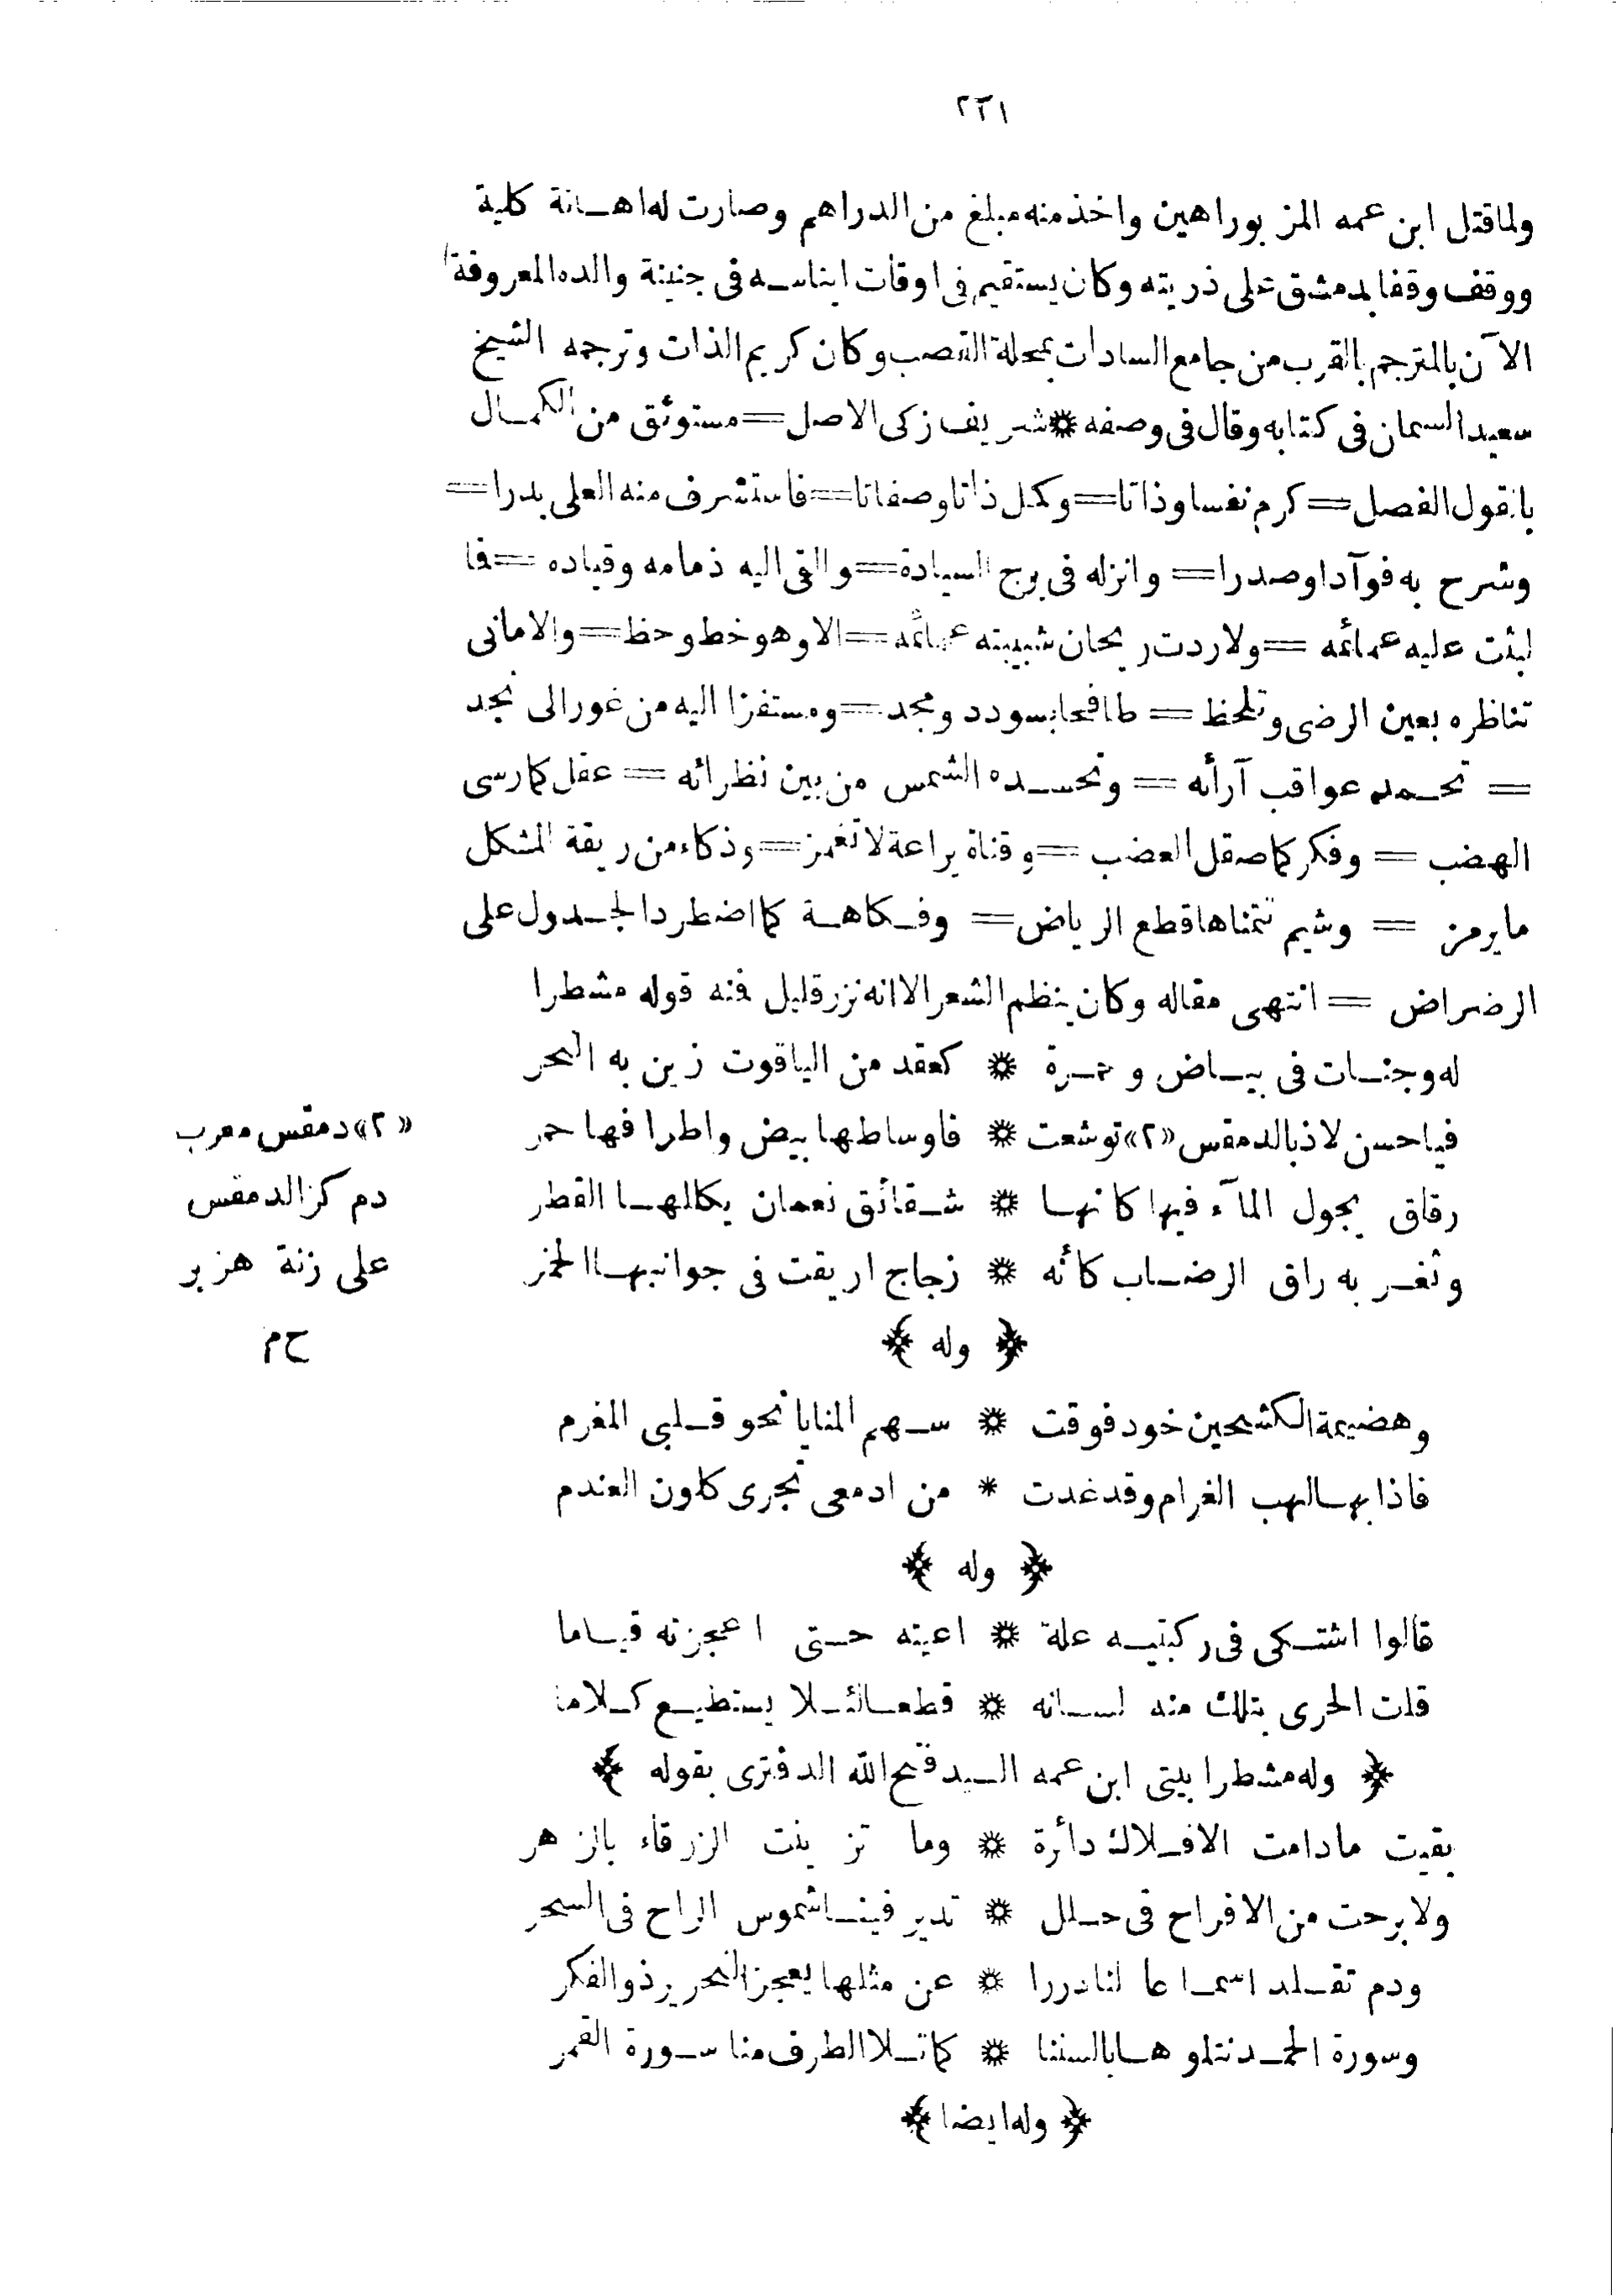 ٢٢١
ولما قتل ابن عمه المزبور اهين واخذ منه مبلغ من الدراهم وصارت له اهانة كلية
ووقف وقفا بدمشق على ذريته وكان يستقيم فى اوقات ايناسه فى جنينة والده المعروفة
الآن بالمترجم بالقرب من جامع السادات بمحلة القصب وكان كريم الذات وترجمه الشيخ
سعيد السمان فى كتابه وقال فى وصفه ۞ شريف زكى الاصل = مستوثق من الكمال
بانقول الفصل = كرم نفسا وذاتا = وكمل ذاتا وصفاتا = فاستشرف منه العلى بدرا =
وشرح به فوآدا وصدرا = وانزله فى برج السيادة = والقى اليه ذمامه وقياده = فا
ليثت عليه عمائمه = ولا ردت ريحان شبيبته عمائمه = الا وهو خط وحظ = والامانى
تناظره بعين الرضى وتلحظ = طافحا بسودد ومجد = ومستفزا اليه من غور الى نجد
= تحمد عواقب آرأئه = وتحسده الشمس من بين نظرائه = عقل كما رسى
الهضب = وفكر كما صقل العضب = وقناة يراعة لا تغمز = وذكاء من ريقة المشكل
ما يرمز = وشيم تتمناها قطع الرياض = وفكاهة كما اضطرد الجدول على
الرضراض = انتهى مقاله وكان ينظم الشعر الا انه نزر قليل فمنه قوله مشطرا
له وجنات فى بياض وحمرة ۞ كعقد من الياقوت زين به النحر
فيا حسن لاذ بالدمقس «٢» توشعت ۞ فاوساطها بيض واطرافها حمر
رقاق يجول المآء فيها كانها ۞ شقائق نعمان يكللها القطر
وثغر به راق الرضاب كأنه ۞ زجاج اريقت فى جوانبها الخمر
«٢» دمقس معرب
دم كز الدمقس
على زنة هزبر
ح م
﴿ وله ﴾
وهضيمة الكشحين خود فوقت ۞ سهم المنايا نحو قلبى المغرم
فاذا بها لهب الغرام وقد غدت * من ادمعى تجرى كلون العندم
﴿ وله ﴾
قالوا اشتكى فى ركبتيه علة ۞ اعيته حتى اعجزته قياما
قلت الحرى بتلك منه لسانه ۞ قطعا لئلا يستطيع كلاما
﴿ وله مشطرا بيتى ابن عمه السيد فتح الله الدفترى بقوله ﴾
بقيت ما دامت الافلاك دائرة ۞ وما تزينت الزرقاء بالزهر
ولا برحت من الافراح فى حلل ۞ تدير فينا شموس الراح فى السحر
ودم تقلد اسماعا لنا دررا ۞ عن مثلها يعجز النحرير ذو الفكر
وسورة الحمد نتلوها بالسننا ۞ كما تلا الطرف منا سورة القمر
﴿ وله ايضا ﴾